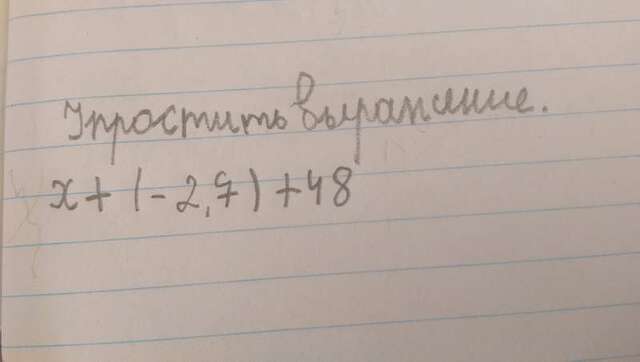 Упростить выражение.
x + (-2,7) + 48